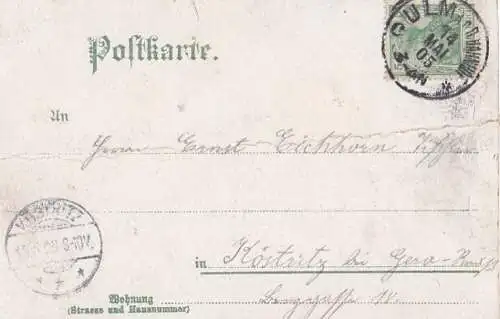 Postkarte.
CULM
14
MAI
05
An
Herrn Ernst Eichhorn
KÖSTRITZ
in Köstritz bei Gera-Reuß
Wohnung
(Strasse und Hausnummer)